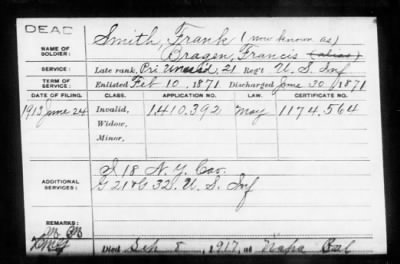 DEAD
Smith, Frank (now known as)
NAME OF SOLDIER: Bragen, Francis (alias)
SERVICE: Late rank, Pri Unassd, 21 Reg't U. S. Inf
TERM OF SERVICE: Enlisted Feb 10, 1871 Discharged June 30, 1871
DATE OF FILING. CLASS. APPLICATION NO. LAW. CERTIFICATE NO.
1913 June 24 Invalid, 1,410,392 May 1174,564
Widow,
Minor,
ADDITIONAL SERVICES: I 18 N. Y. Cav.
G 21 & G 32. U. S. Inf
REMARKS:
Died Sep 8, 1917, at Napa Cal